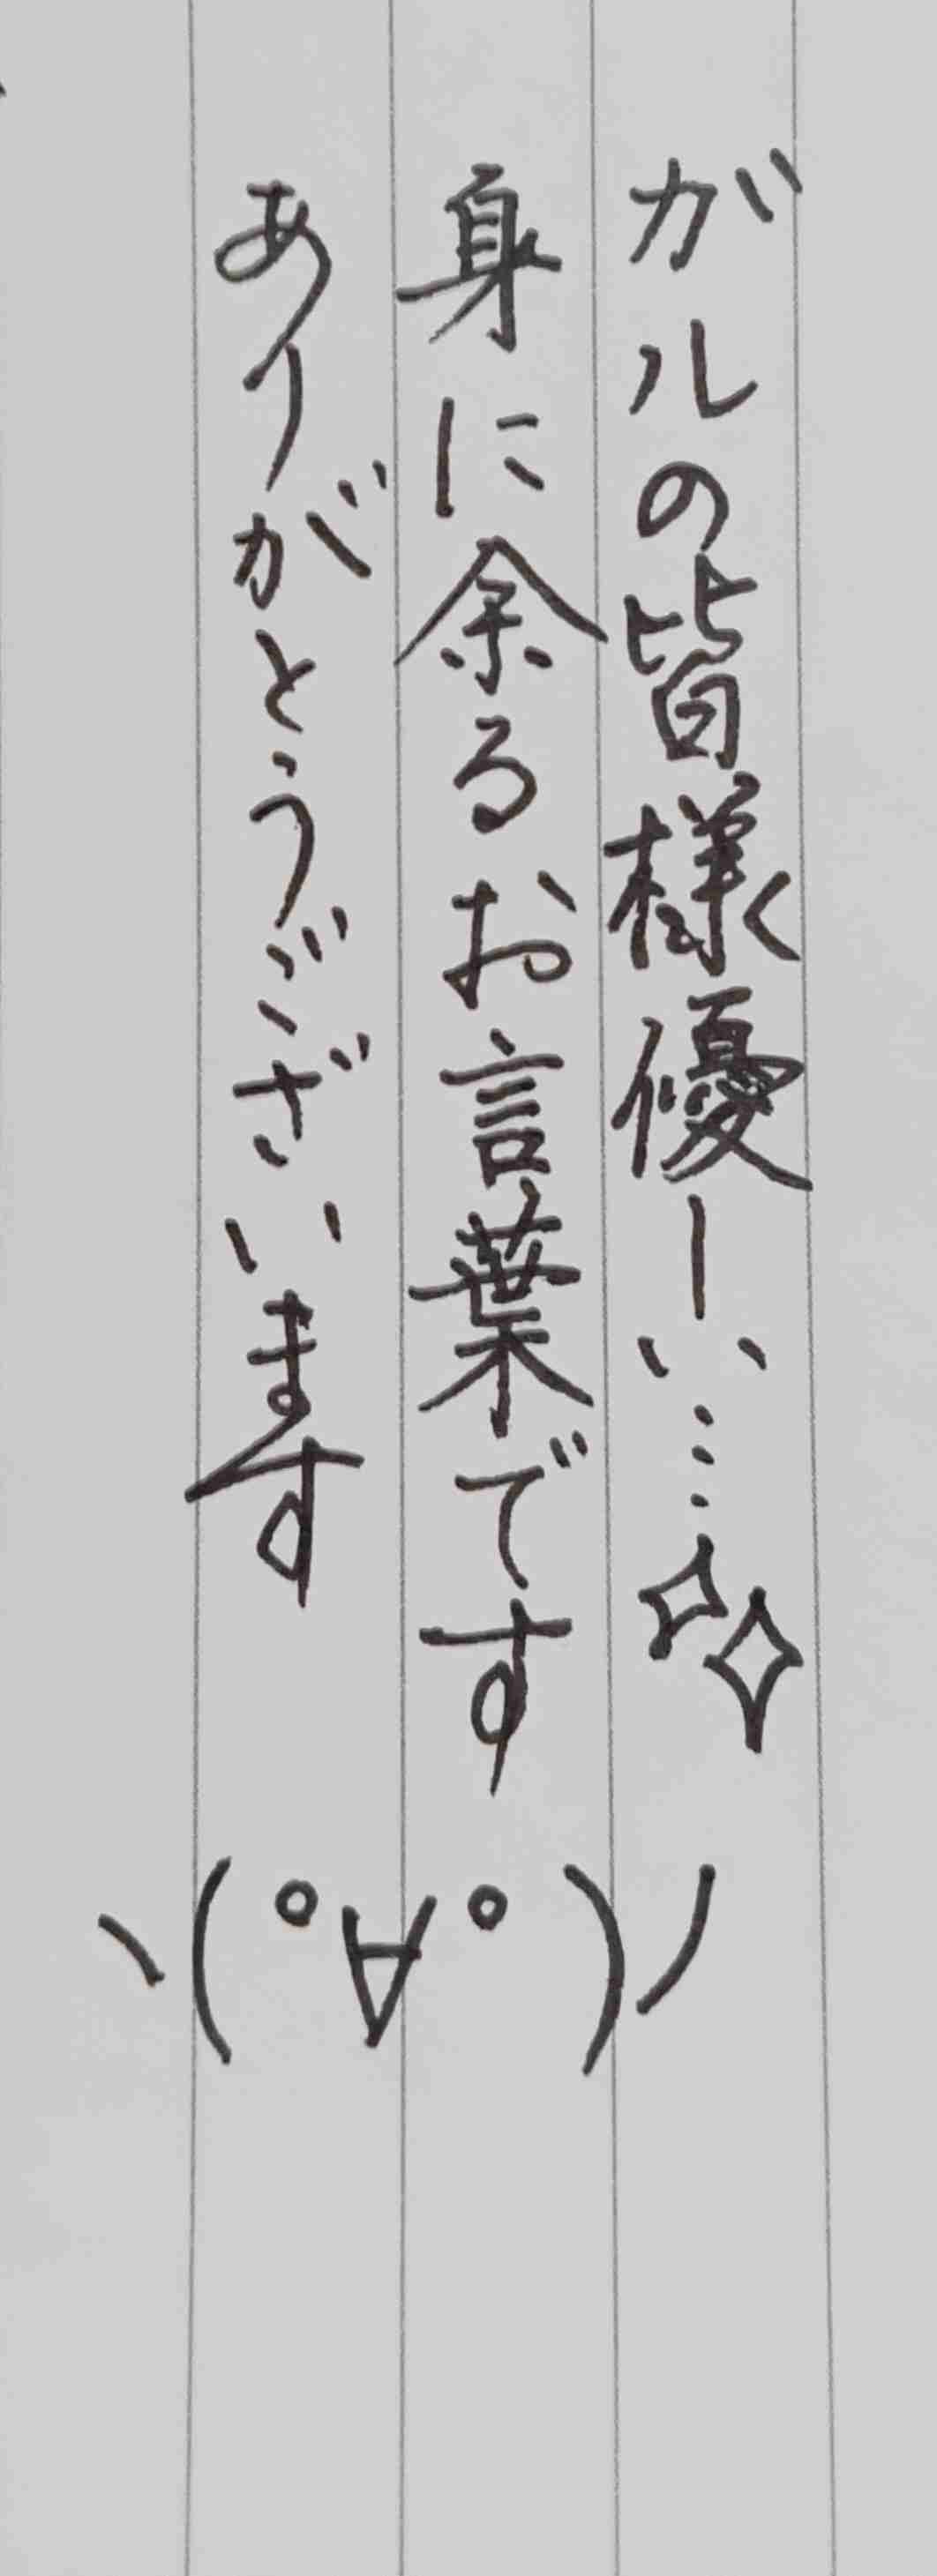 ガルの皆様優しい…✧✧
身に余るお言葉です
ありがとうございます
ヽ(°∀°)ノ